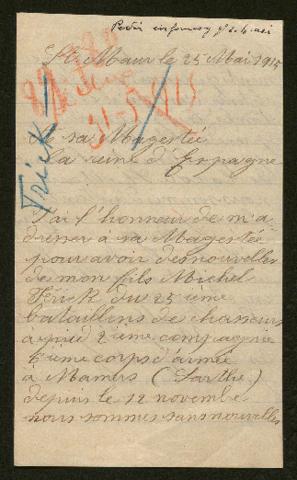 St Maur le 25 Mai 1915
31-5-15
Trick
a sa Magestée
La reine d'Espagne
J'ai l'honneur de m'a
dresser à sa Magestée
pour avoir des nouvelles
de mon fils Michel
Trick du 25 ième
bataillons de chasseurs
a pied 2 ième compagnie
6 ième corps d'armée
à Mamers (Sarthe)
depuis le 12 novembre
nous sommes sans nouvelles